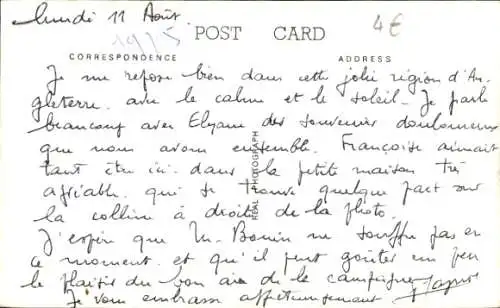 lundi 11 Août.
1975
4€
POST CARD
CORRESPONDENCE
ADDRESS
Je me repose bien dans cette jolie région d'An-
gleterre. avec le calme et le soleil - Je parle
beaucoup avec Elyane des souvenirs douloureux
que nous avons ensemble. Françoise aimait
tant être ici. dans la petite maison très
agréable. qui se trouve quelque part sur
la colline à droite de la photo.
J'espère que M. Bonin ne souffre pas en
ce moment. et qu'il peut goûter un peu
le plaisir du bon air de la campagne.
Je vous embrasse affectueusement.
REAL PHOTOGRAPH